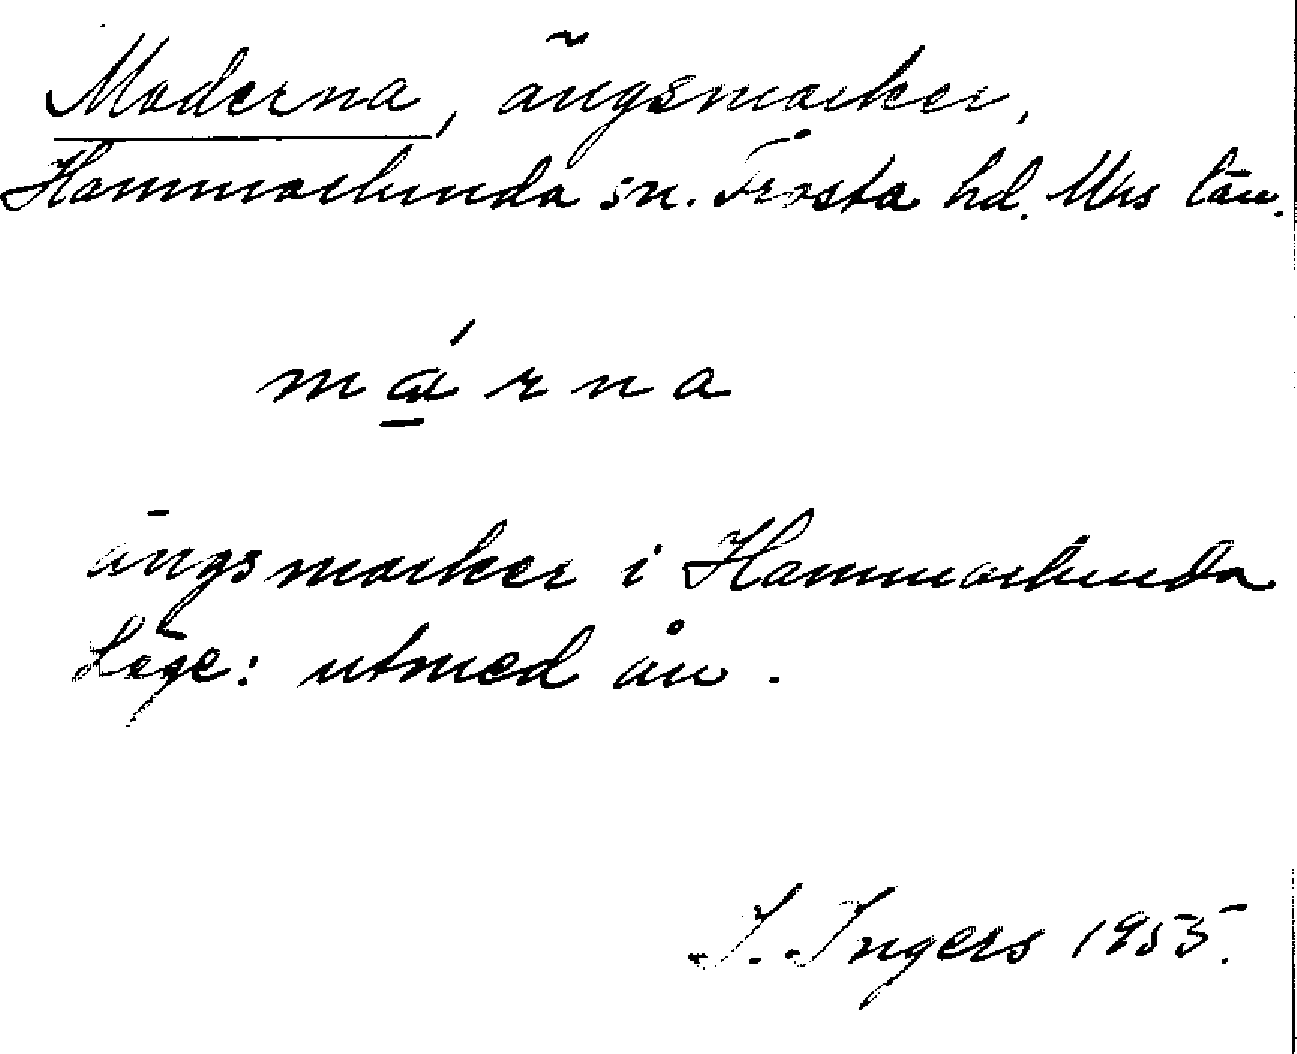 Maderna, ängsmarker,
Hammarlunda sn. Frosta hd. Mhs län.
márna
ängsmarker i Hammarlunda
Läge: utmed ån.
I. Ingers 1955.